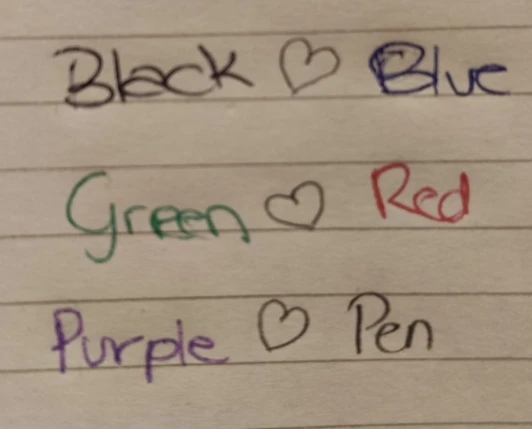 Black ♡ Blue
Green ♡ Red
Purple ♡ Pen